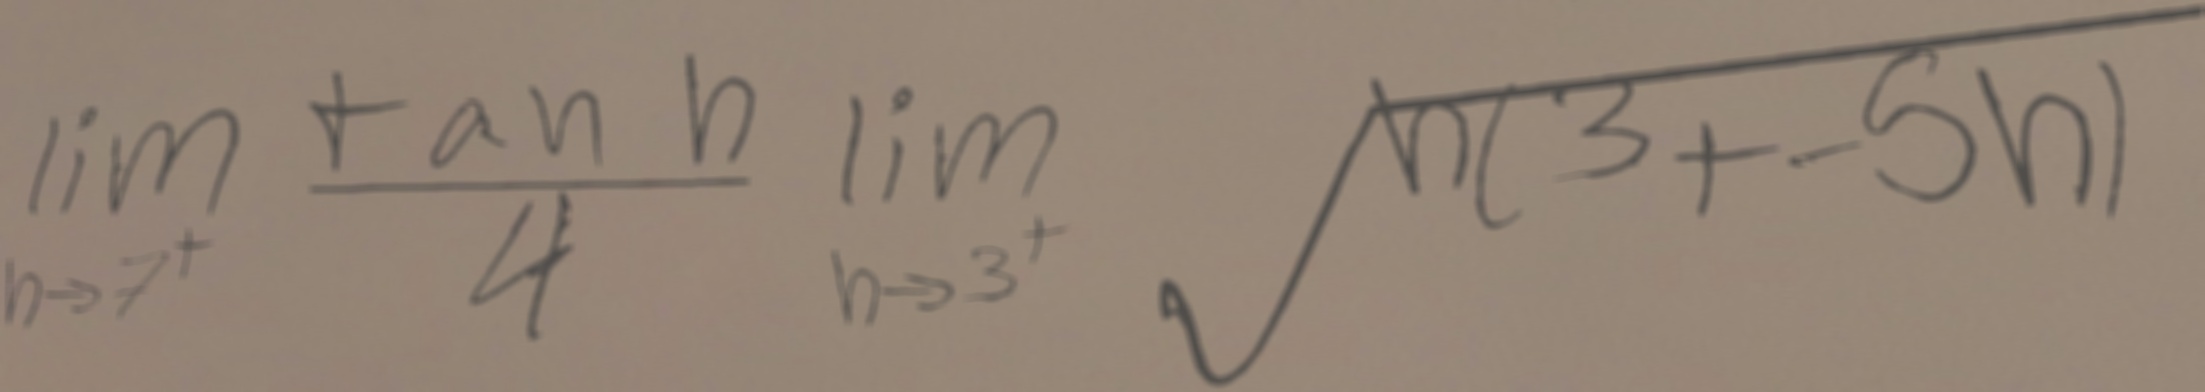 \lim_{h \to 7^+} \frac{\tan h}{4} \lim_{h \to 3^+} \sqrt{h(3+-5h)}